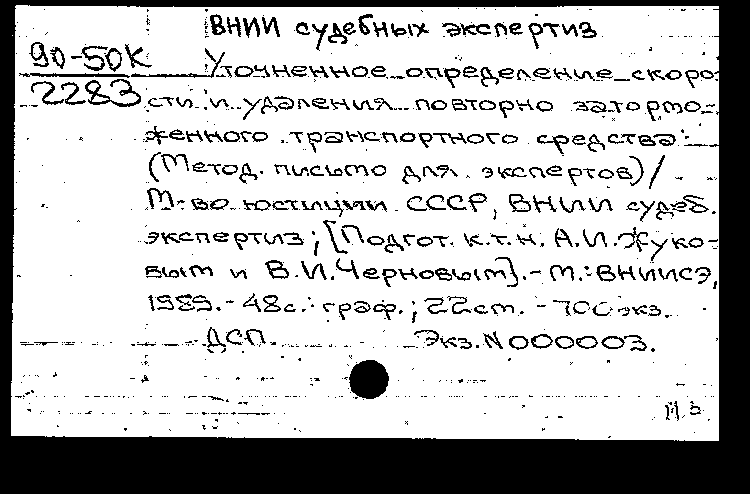 ВНИИ судебных экспертиз
90-50К
2283
Уточненное определение скоро-
сти и удаления повторно затормо-
женного транспортного средства:
(Метод. письмо для экспертов)/
М-во юстиции СССР, ВНИИ судеб.
экспертиз; [Подгот. к.т.н. А.И.Жуко-
вым и В.И.Черновым].- М.: ВНИИСЭ,
1989.- 48с.: граф.; 22см. - 700экз.
ДСП. Экз.N000003.